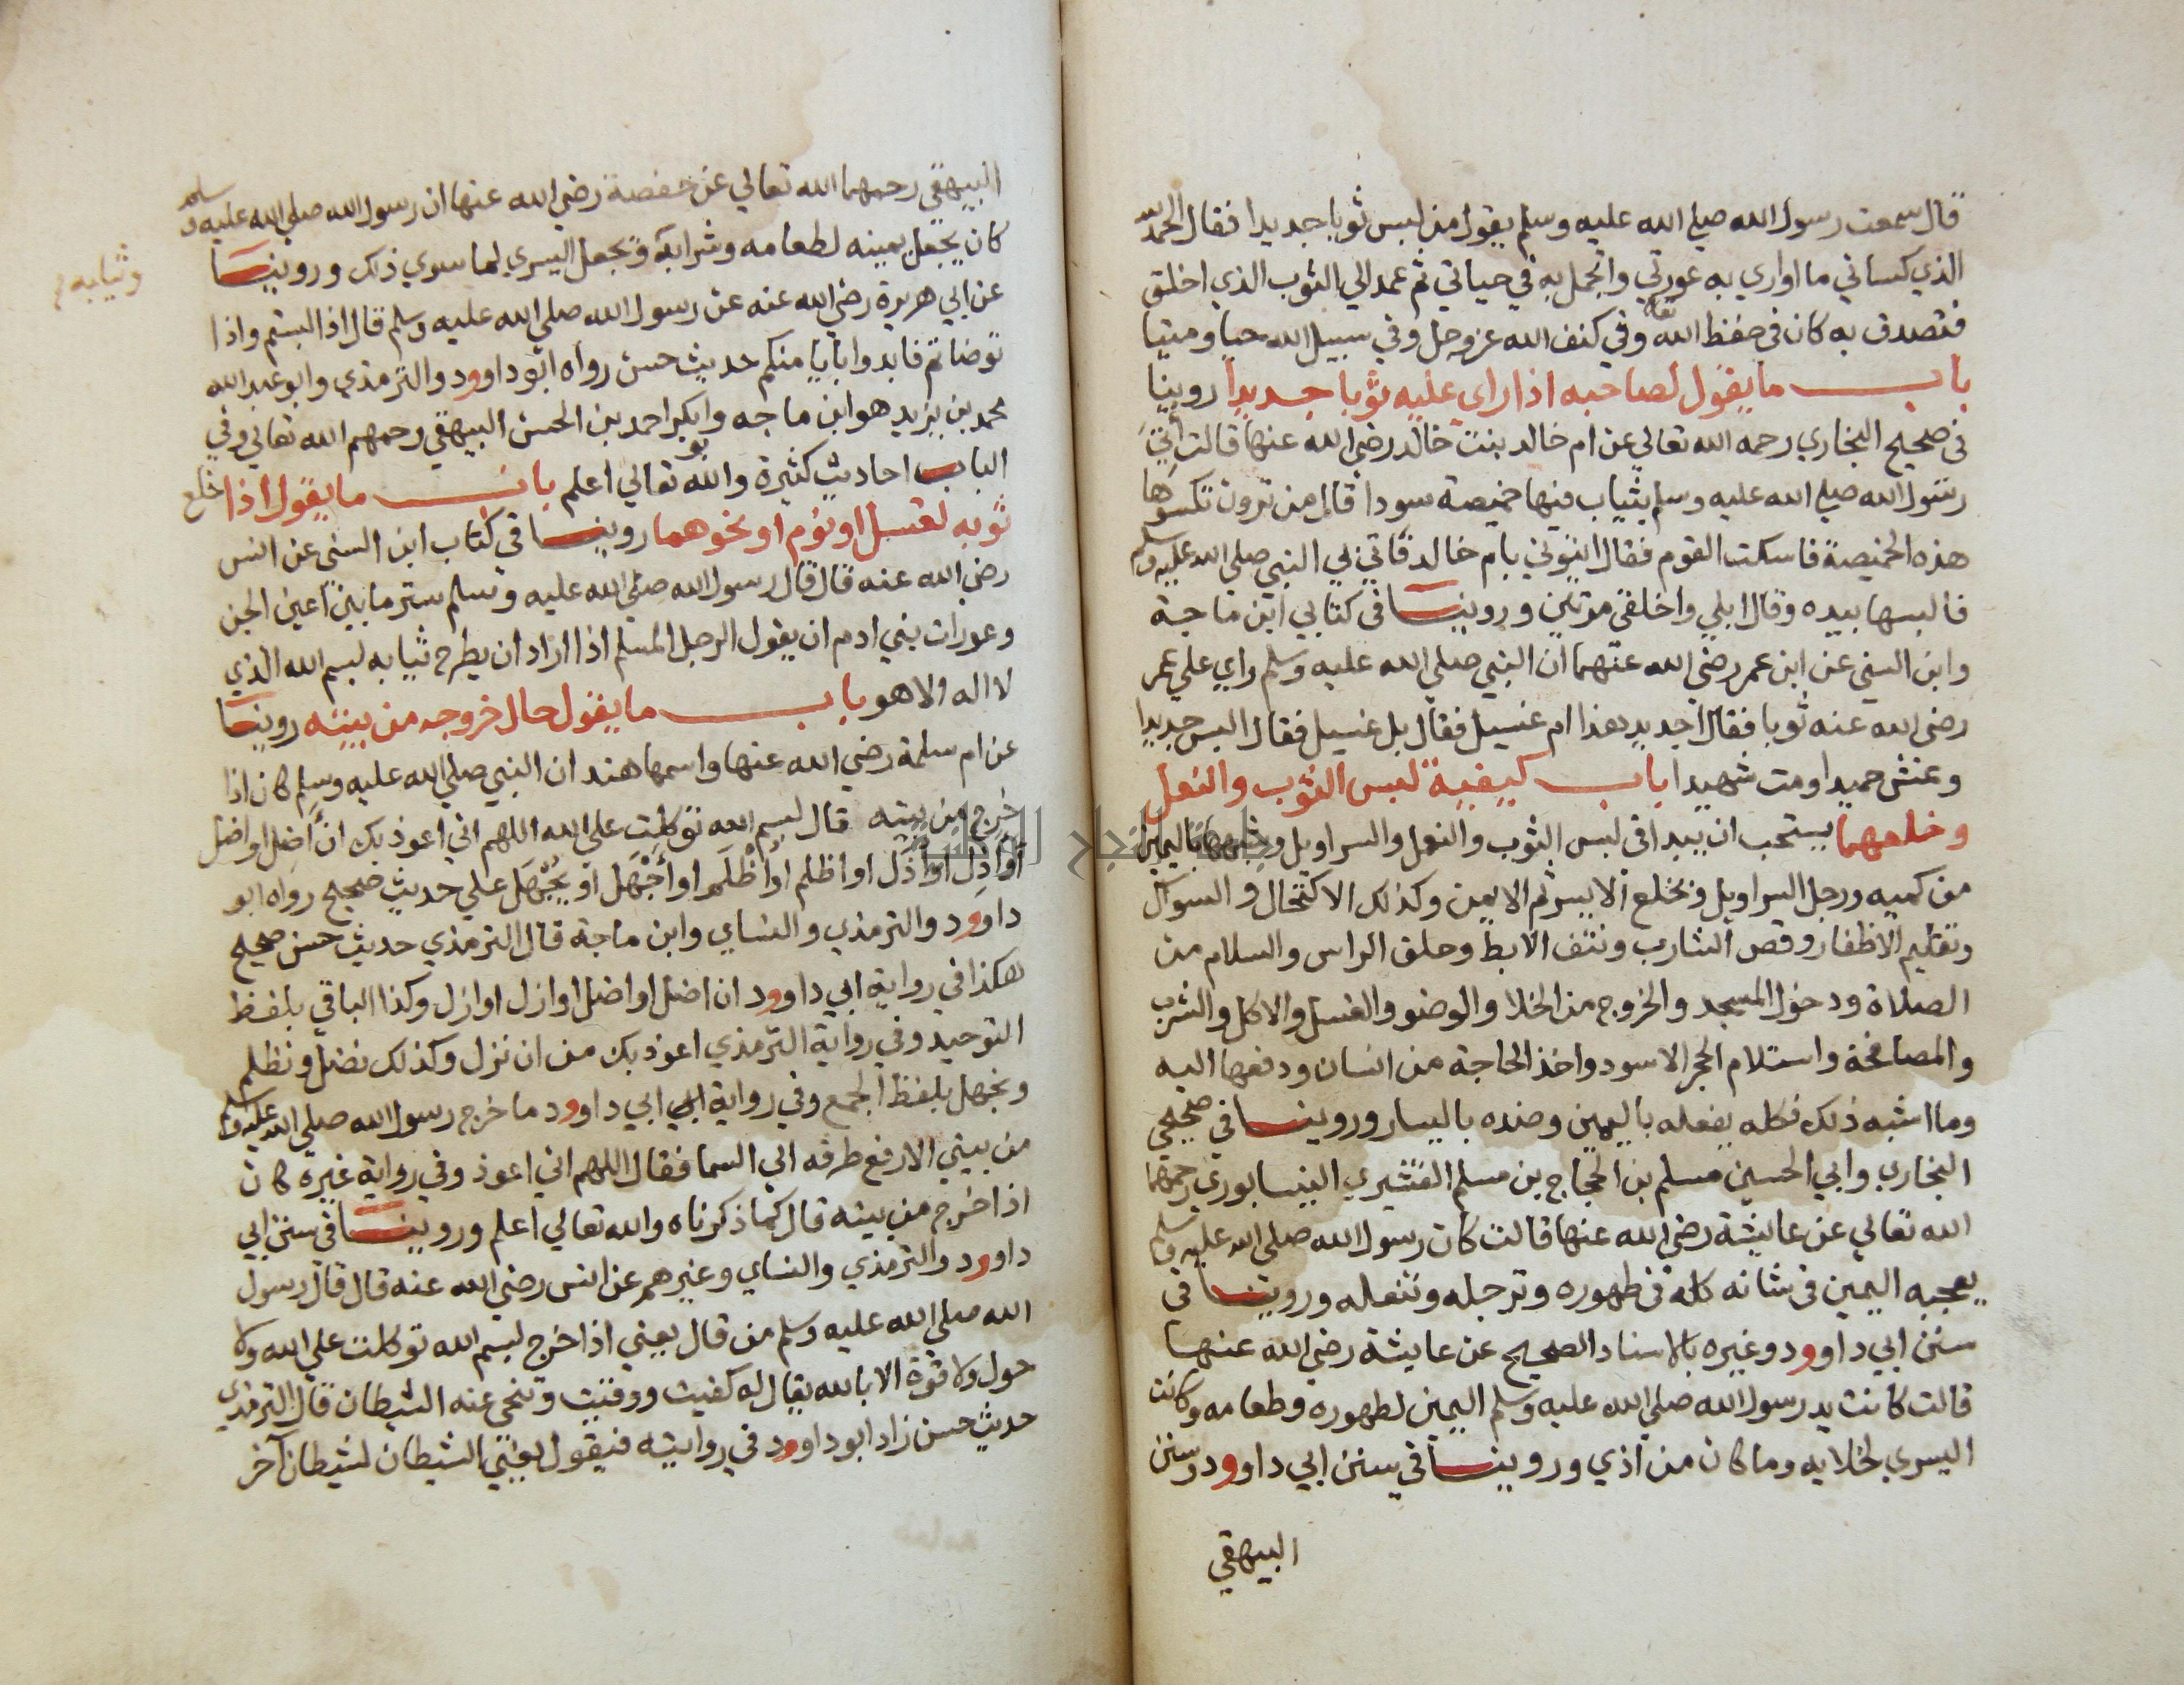 قال سمعت رسول الله صلي الله عليه وسلم يقول من لبس ثوبا جديدا فقال الحمد لله
الذي كساني ما اواري به عورتي واتجمل به في حياتي ثم عمد الي الثوب الذي اخلق
فتصدق به كان في حفظ الله تعالى وفي كنف الله عز وجل وفي سبيل الله حيا وميتا
باب ما يقول لصاحبه اذا راى عليه ثوبا جديدا روينا
في صحيح البخاري رحمه الله تعالي عن ام خالد بنت خالد رضي الله عنها قالت أتي
رسول الله صلي الله عليه وسلم بثياب فيها خميصة سودا قال من ترون نكسوها
هذه الخميصة فاسكت القوم فقال ائتوني بام خالد فاتي بي النبي صلي الله عليه وسلم
فالبسها بيده وقال ابلي واخلقي مرتين وروينا في كتابي ابن ماجة
وابن السني عن ابن عمر رضي الله عنهما ان النبي صلي الله عليه وسلم راي علي عمر
رضي الله عنه ثوبا فقال اجديد هذا ام غسيل فقال بل غسيل فقال البس جديدا
وعش حميدا ومت شهيدا باب كيفية لبس الثوب والنعل
وخلعهما يستحب ان يبدا في لبس الثوب والنعل والسراويل وشبهها باليمين
من كميه ورجل السراويل ويخلع الايسر ثم الايمن وكذلك الاكتحال والسواك
وتقليم الاظفار وقص الشارب ونتف الابط وحلق الراس والسلام من
الصلاة ودخول المسجد والخروج من الخلا والوضو والغسل والاكل والشرب
والمصافحة واستلام الحجر الاسود واخذ الحاجة من انسان ودفعها اليه
وما اشبه ذلك فكله يفعله باليمين وضده باليسار وروينا في صحيحي
البخاري وابي الحسين مسلم بن الحجاج بن مسلم القشيري النيسابوري رحمهما
الله تعالي عن عايشة رضي الله عنها قالت كان رسول الله صلي الله عليه وسلم
يعجبه اليمين في شانه كله في طهوره وترجله وتنعله وروينا في
سنن ابي داوود وغيره بالاسناد الصحيح عن عايشة رضي الله عنها
قالت كانت يد رسول الله صلي الله عليه وسلم اليمين لطهوره وطعامه وكانت
اليسري لخلايه وما كان من اذي وروينا في سنن ابي داوود وسنن
البيهقي
البيهقي رحمهما الله تعالي عن حفصة رضي الله عنها ان رسول الله صلي الله عليه وسلم
كان يجعل يمينه لطعامه وشرابه ويجعل اليسري لما سوي ذلك وروينا
وثيابه
عن ابي هريرة رضي الله عنه عن رسول الله صلي الله عليه وسلم قال اذا لبستم واذا
توضاتم فابدوا بايامنكم حديث حسن رواه ابو داوود والترمذي وابو عبد الله
محمد بن يزيد هو ابن ماجه وابو بكر احمد بن الحسن البيهقي رحمهم الله تعالي وفي
الباب احاديث كثيرة والله تعالي اعلم باب ما يقول اذا خلع
ثوبه لغسل او نوم او نحوهما روينا في كتاب ابن السني عن انس
رضي الله عنه قال قال رسول الله صلي الله عليه وسلم ستر ما بين اعين الجن
وعورات بني ادم ان يقول الرجل المسلم اذا اراد ان يطرح ثيابه بسم الله الذي
لا اله الا هو باب ما يقول حال خروجه من بيته روينا
عن ام سلمة رضي الله عنها واسمها هند ان النبي صلي الله عليه وسلم كان اذا
خرج من بيته قال بسم الله توكلت علي الله اللهم اني اعوذ بك ان أضل او اضل
أو ازل او أزل او اظلم او أظلم او أجهل او يجهل علي حديث صحيح رواه ابو
داوود والترمذي والنساي وابن ماجة قال الترمذي حديث حسن صحيح
هكذا في رواية ابي داوود ان اضل او اضل او ازل او ازل وكذا الباقي بلفظ
التوحيد وفي رواية الترمذي اعوذ بك من ان نزل وكذلك نضل ونظلم
ونجهل بلفظ الجمع وفي رواية ابي داوود ما خرج رسول الله صلي الله عليه وسلم
من بيتي الا رفع طرفه الي السما فقال اللهم اني اعوذ وفي رواية غيره كان
اذا خرج من بيته قال كما ذكرناه والله تعالي اعلم وروينا في سنن ابي
داوود والترمذي والنساي وغيرهم عن انس رضي الله عنه قال قال رسول
الله صلي الله عليه وسلم من قال يعني اذا خرج بسم الله توكلت علي الله ولا
حول ولا قوة الا بالله يقال له كفيت ووقيت وتنحي عنه الشيطان قال الترمذي
حديث حسن زاد ابو داوود في روايته فيقول يعني الشيطان لشيطان آخر